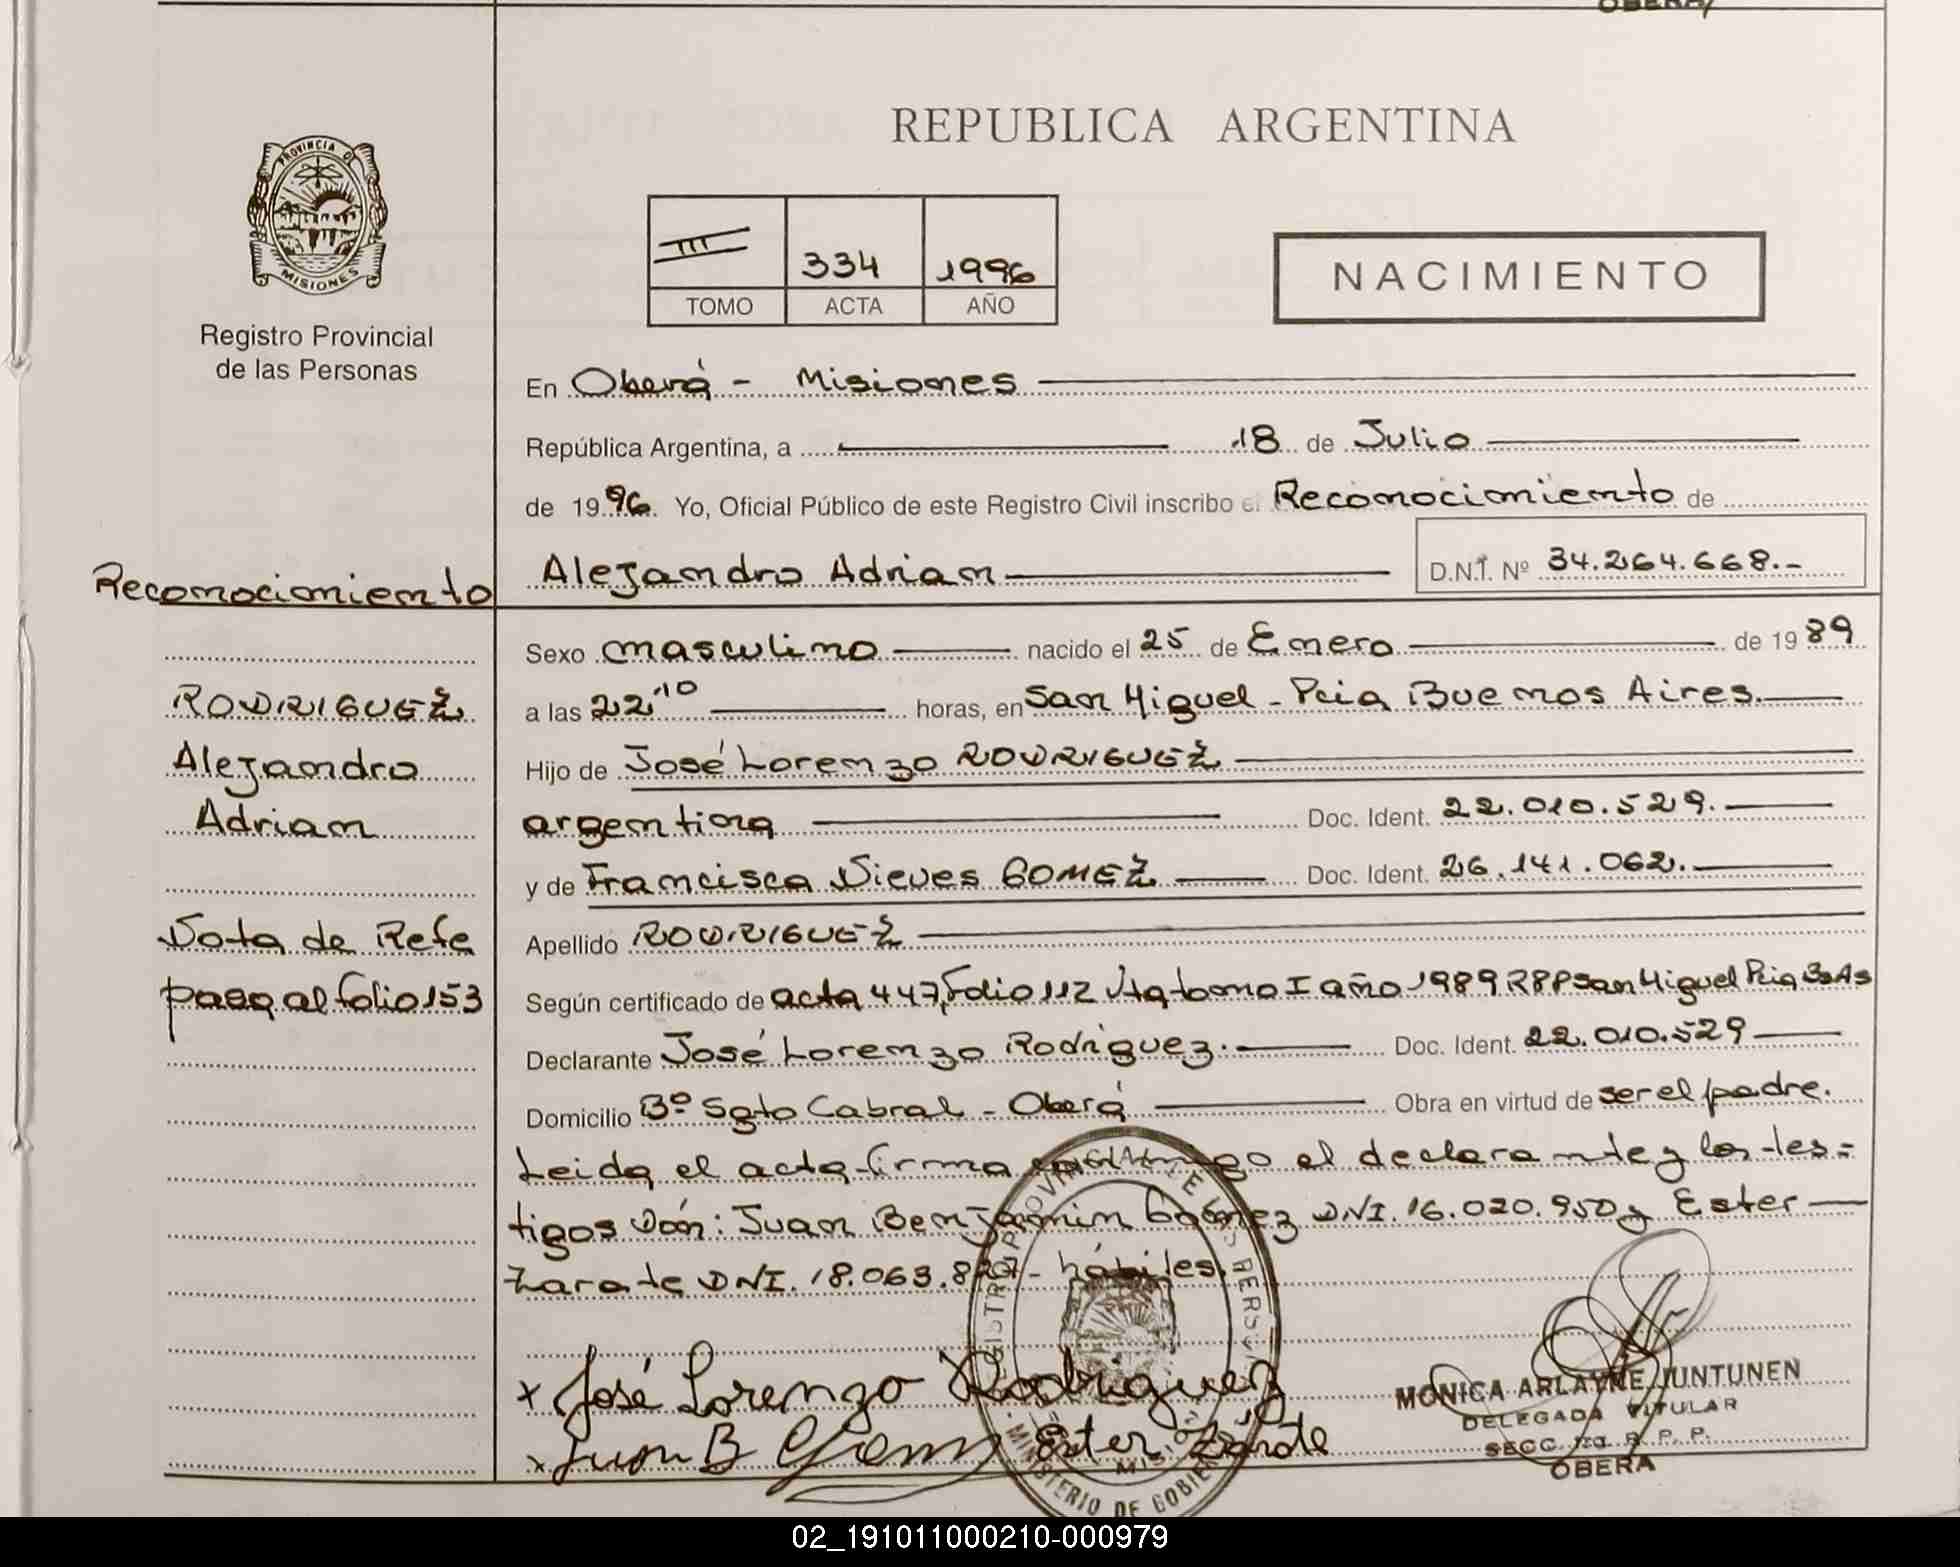 OBERA
REPUBLICA ARGENTINA
PROVINCIA D
MISIONES
III 334 1996
TOMO ACTA AÑO
NACIMIENTO
Registro Provincial
de las Personas
En Oberá - Misiones
República Argentina, a 18 de Julio
de 1996. Yo, Oficial Público de este Registro Civil inscribo el Reconocimiento de
Alejandro Adrian D.N.I. Nº 34.264.668.-
Reconocimiento
RODRIGUEZ
Alejandro
Adrian
Nota de Refe
pasa al folio 153
Sexo masculino nacido el 25 de Enero de 1989
a las 22'10 horas, en San Miguel - Pcia Buenos Aires.
Hijo de José Lorenzo RODRIGUEZ
argentina Doc. Ident. 22.010.529.
y de Francisca Nieves GOMEZ Doc. Ident. 26.141.062.
Apellido RODRIGUEZ
Según certificado de acta 447, Folio 112 Vta tomo I año 1989 RPP San Miguel Pcia Bs As
Declarante José Lorenzo Rodriguez. Doc. Ident. 22.010.529
Domicilio Bº Sgto Cabral - Oberá Obra en virtud de ser el padre.
Leida el acta firma conmigo el declarante y los tes=
tigos Dón: Juan Benjamin Gómez DNI. 16.020.950 y Ester
Zarate DNI. 18.063.8 - hábiles.
x José Lorenzo Rodriguez
x Juan B Gomez Ester Zárate
MINISTERIO DE GOBIE
MONICA ARLAYNE JUNTUNEN
DELEGADA TITULAR
SECC. R. P. P.
OBERA
02_191011000210-000979